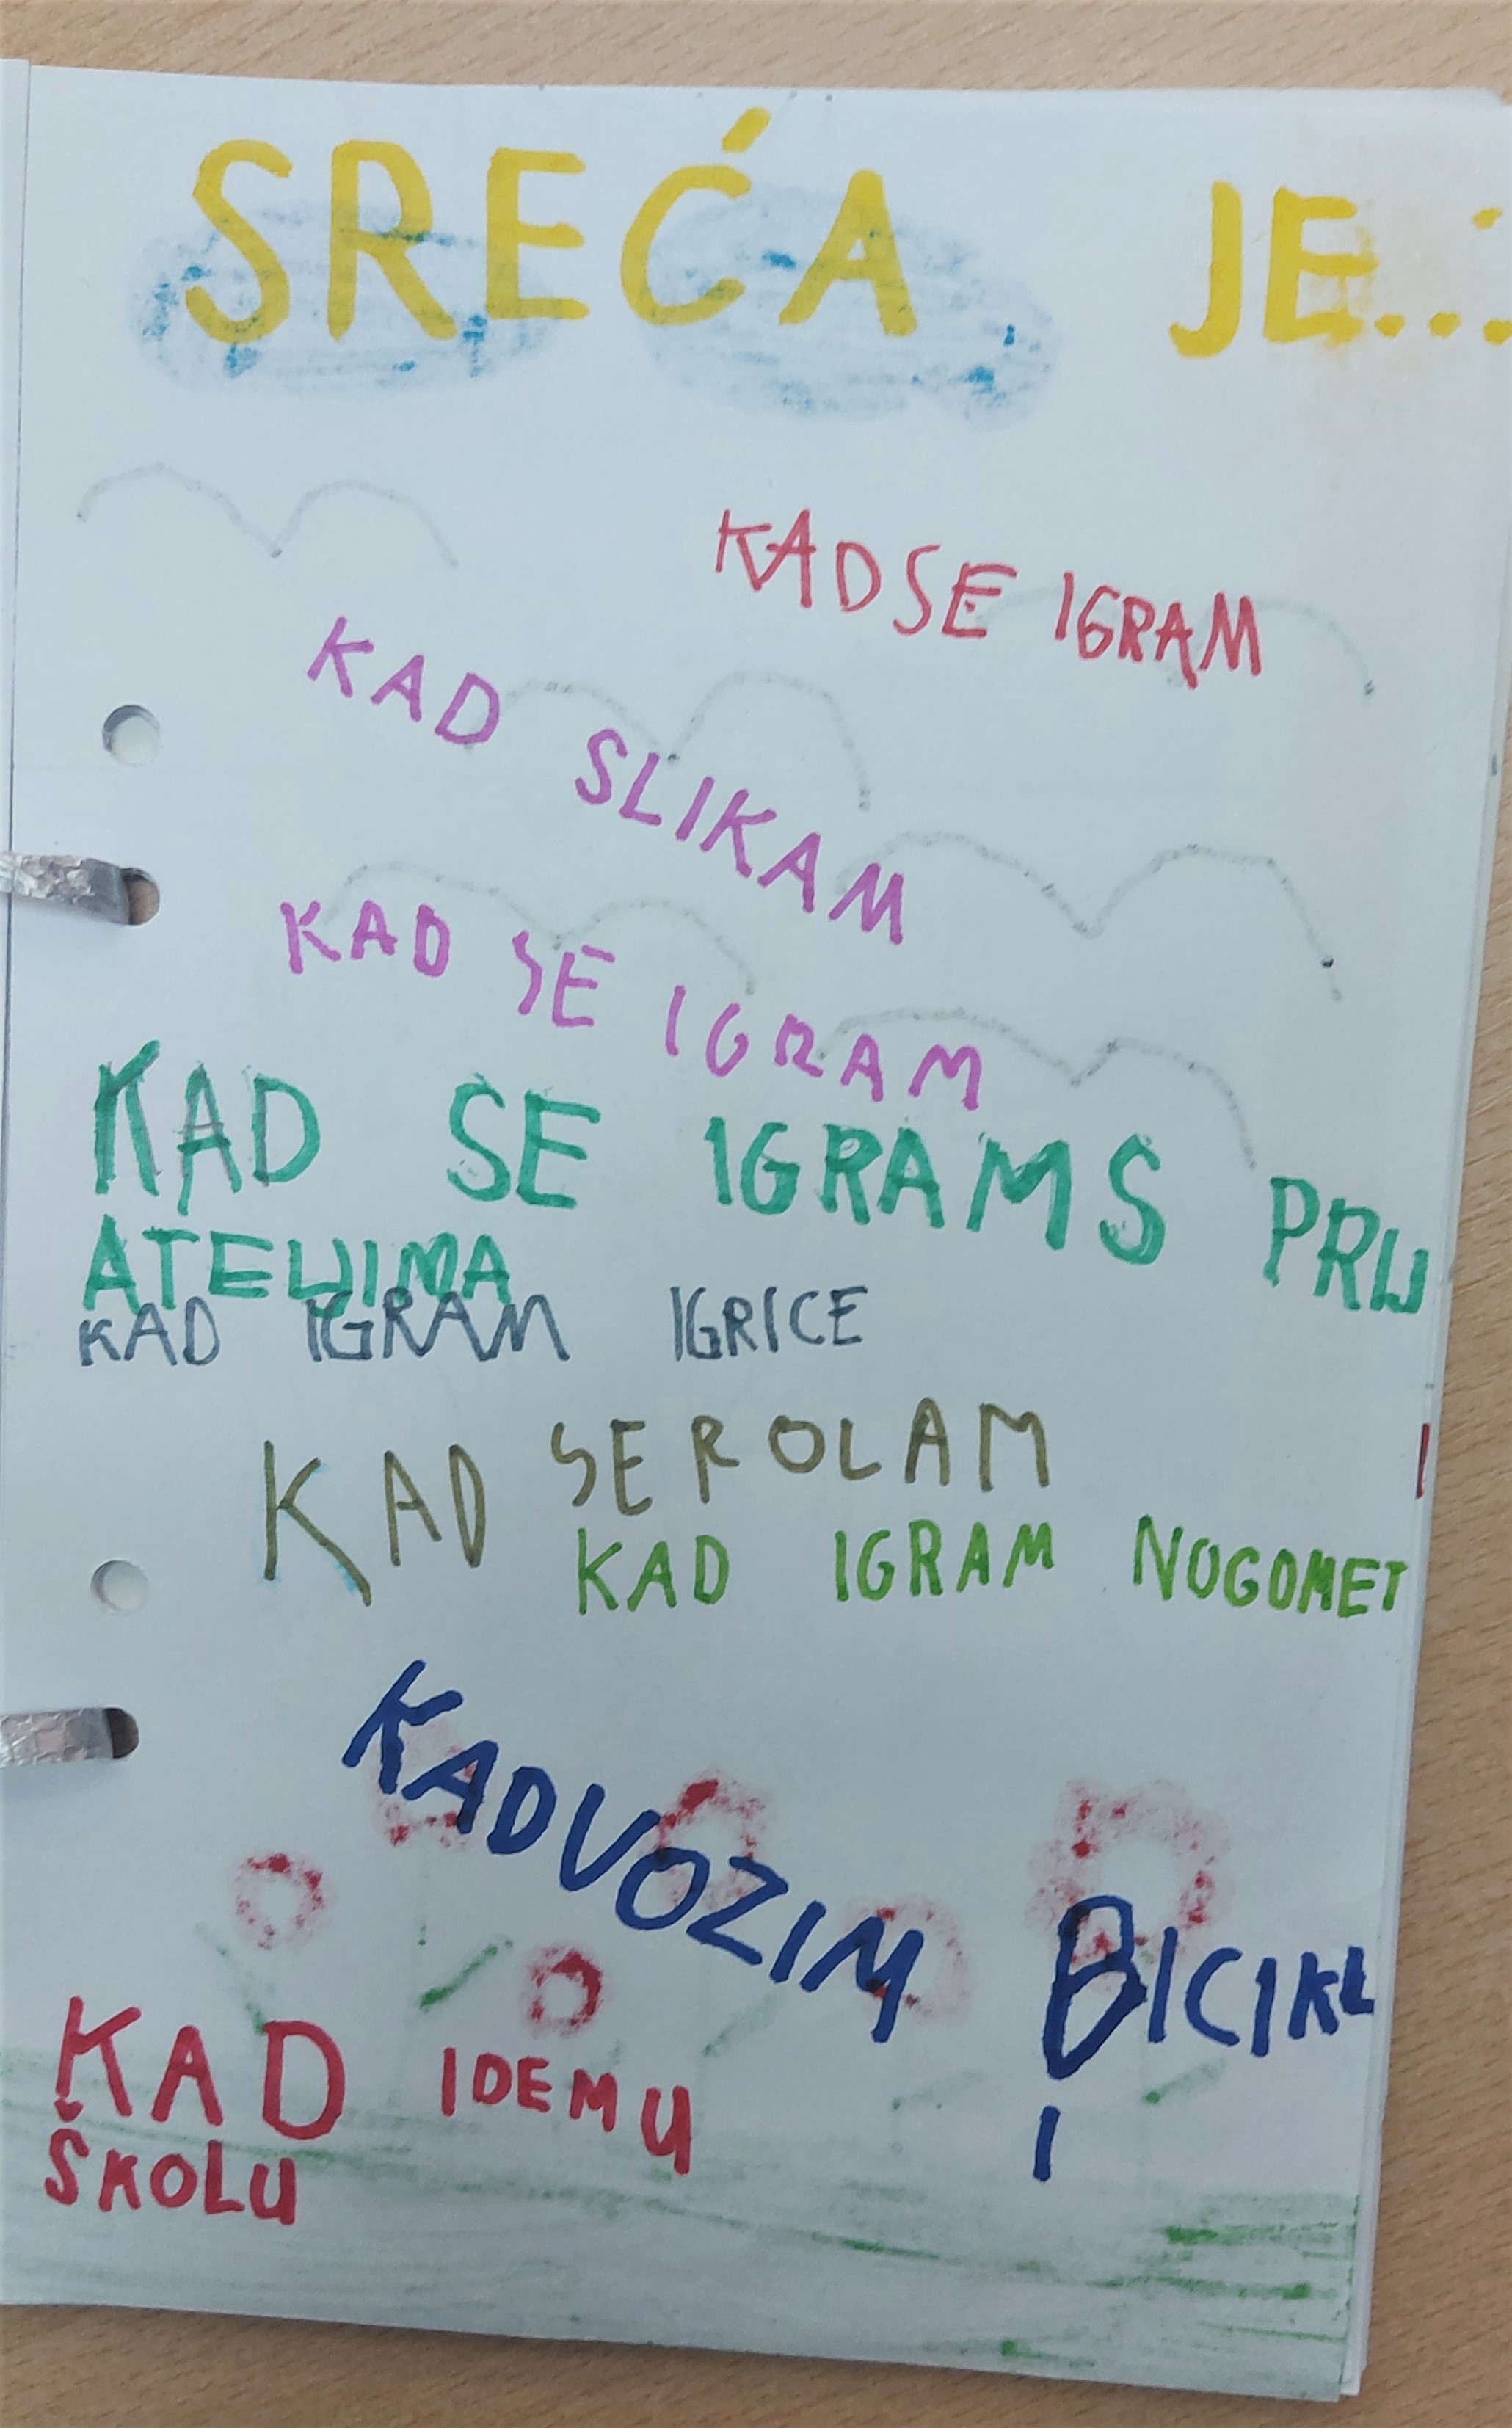 SREĆA JE...
KAD SE IGRAM
KAD SLIKAM
KAD SE IGRAM
KAD SE IGRAM S PRIJ
ATELJIMA
KAD IGRAM IGRICE
KAD SE ROLAM
KAD IGRAM NOGOMET
KAD VOZIM BICIKL
I
KAD IDEM U
ŠKOLU